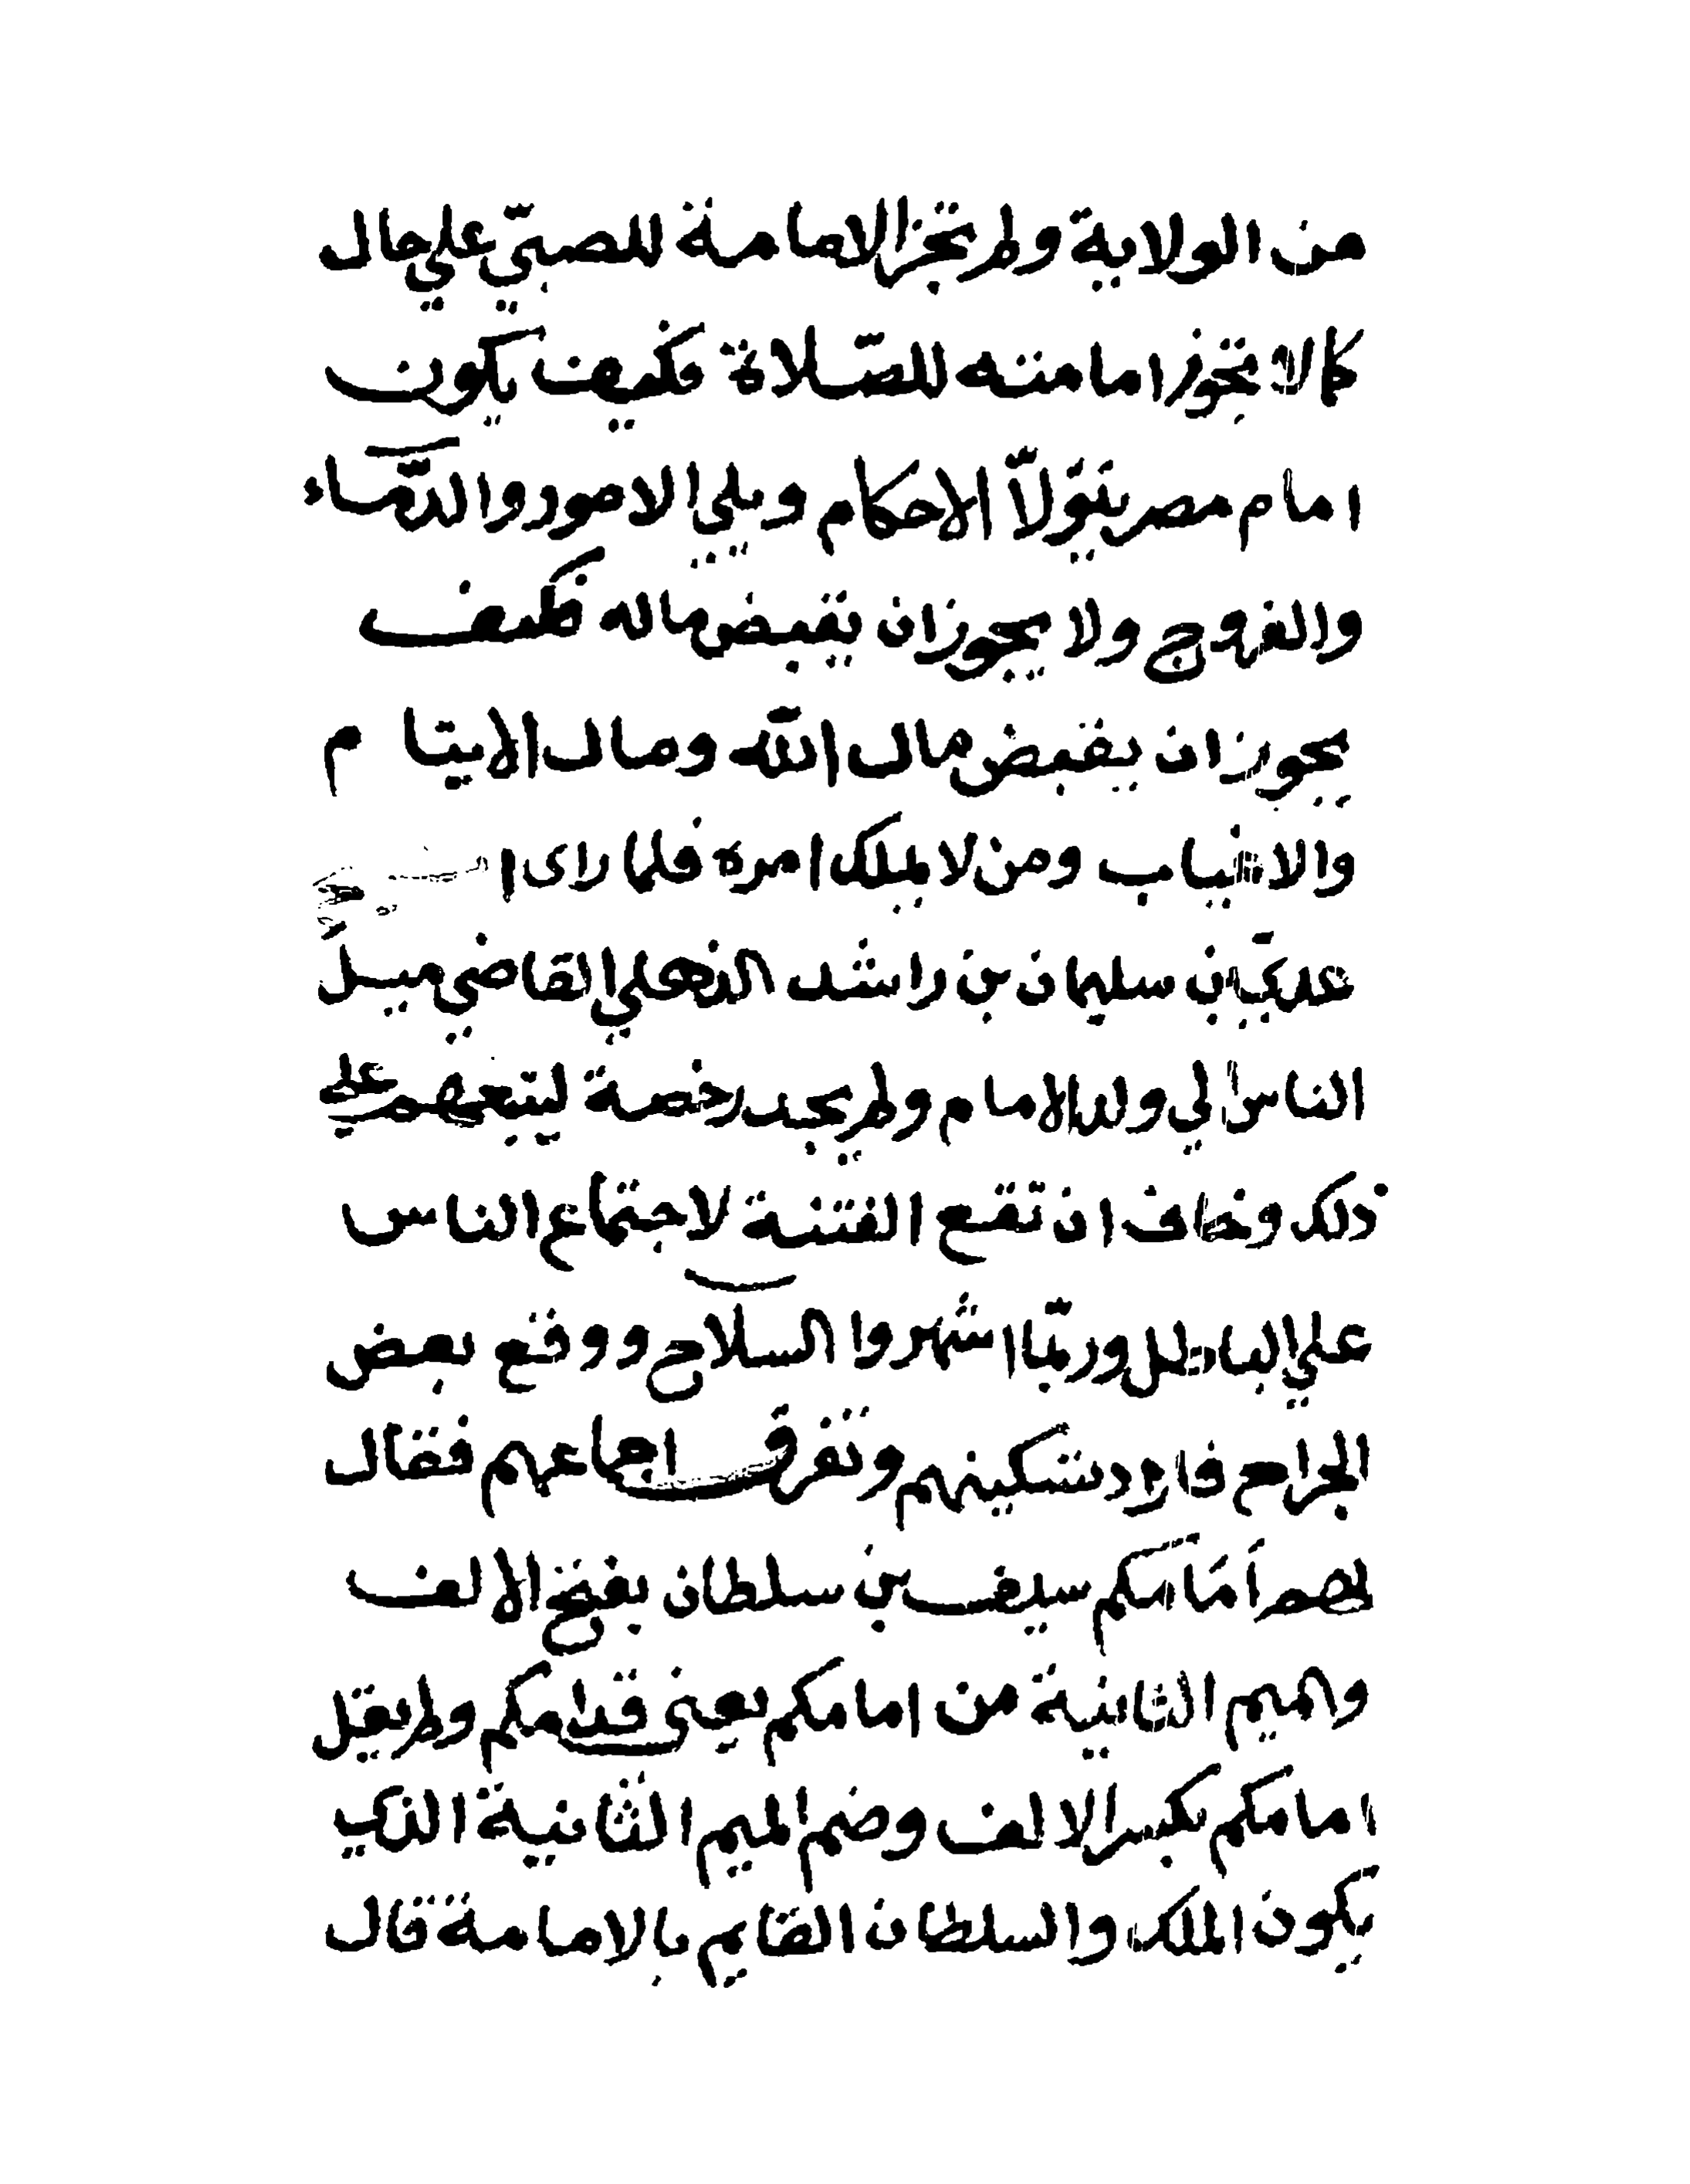 من الولاية ولم تجز الامامة للصبيّ علي حال
كالا تجوز امامته للصّلاة فكيف يكون
امام مصر يتولّا الاحكام ويلي الامور والدّماء
والفروج ولا يجوز ان يقبض ماله فكيف
يجوز ان يقبض مال اللّه ومال الايتام
والاغياب ومن لا يملك امره فلما راى
عدي بن سليمان بن راشد الذهلي القاضي ميل
الناس الي ولد الامام ولم يجد رخصة ليتبعهم علي
ذلك وخاف ان تقع الفتنة لاجتماع الناس
علي الباطل وربّما اشهروا السلاح ووقع بعض
الجراح فاراد تسكينهم وتفرق اجماعهم فقال
لهم أمَامَكم سيف بن سلطان بفتح الالف
والميم الثانية من امامكم يعني قدامكم ولم يقل
امامكم بكسر الالف وضم الميم الثانية الذي
يكون الملك والسلطان القايم بالامامة قال